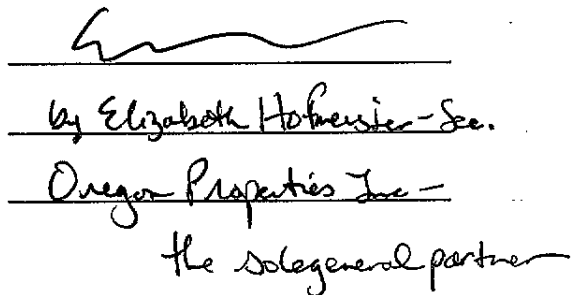 by Elizabeth Hofmeister-Sec.
Oregon Properties Inc-
the solegeneral partner